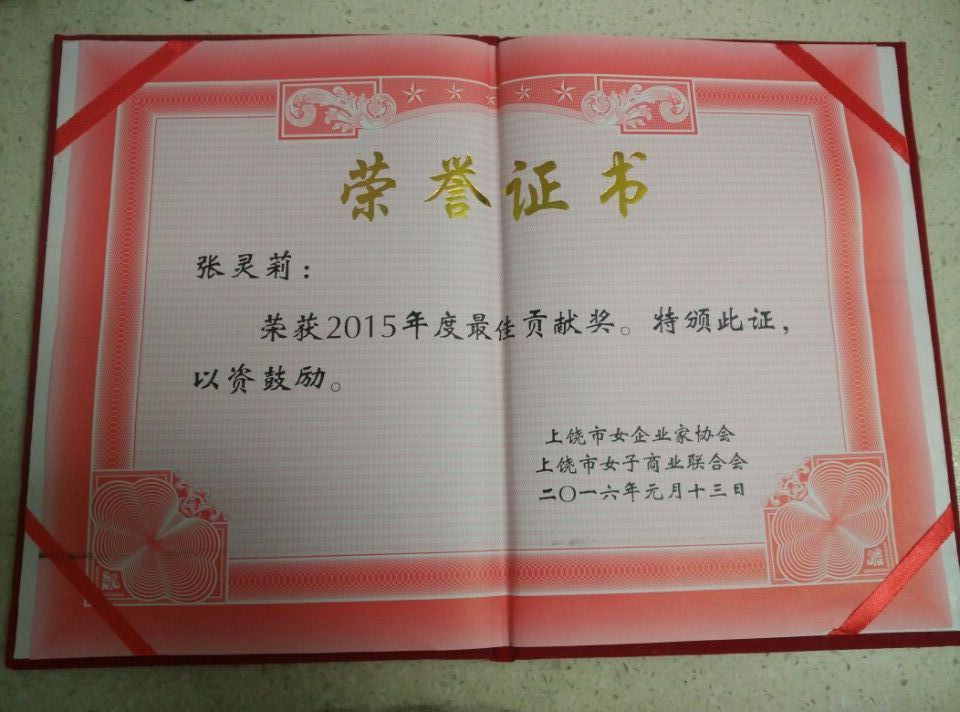 荣誉证书
张灵莉：
荣获2015年度最佳贡献奖。特颁此证，
以资鼓励。
上饶市女企业家协会
上饶市女子商业联合会
二〇一六年元月十三日